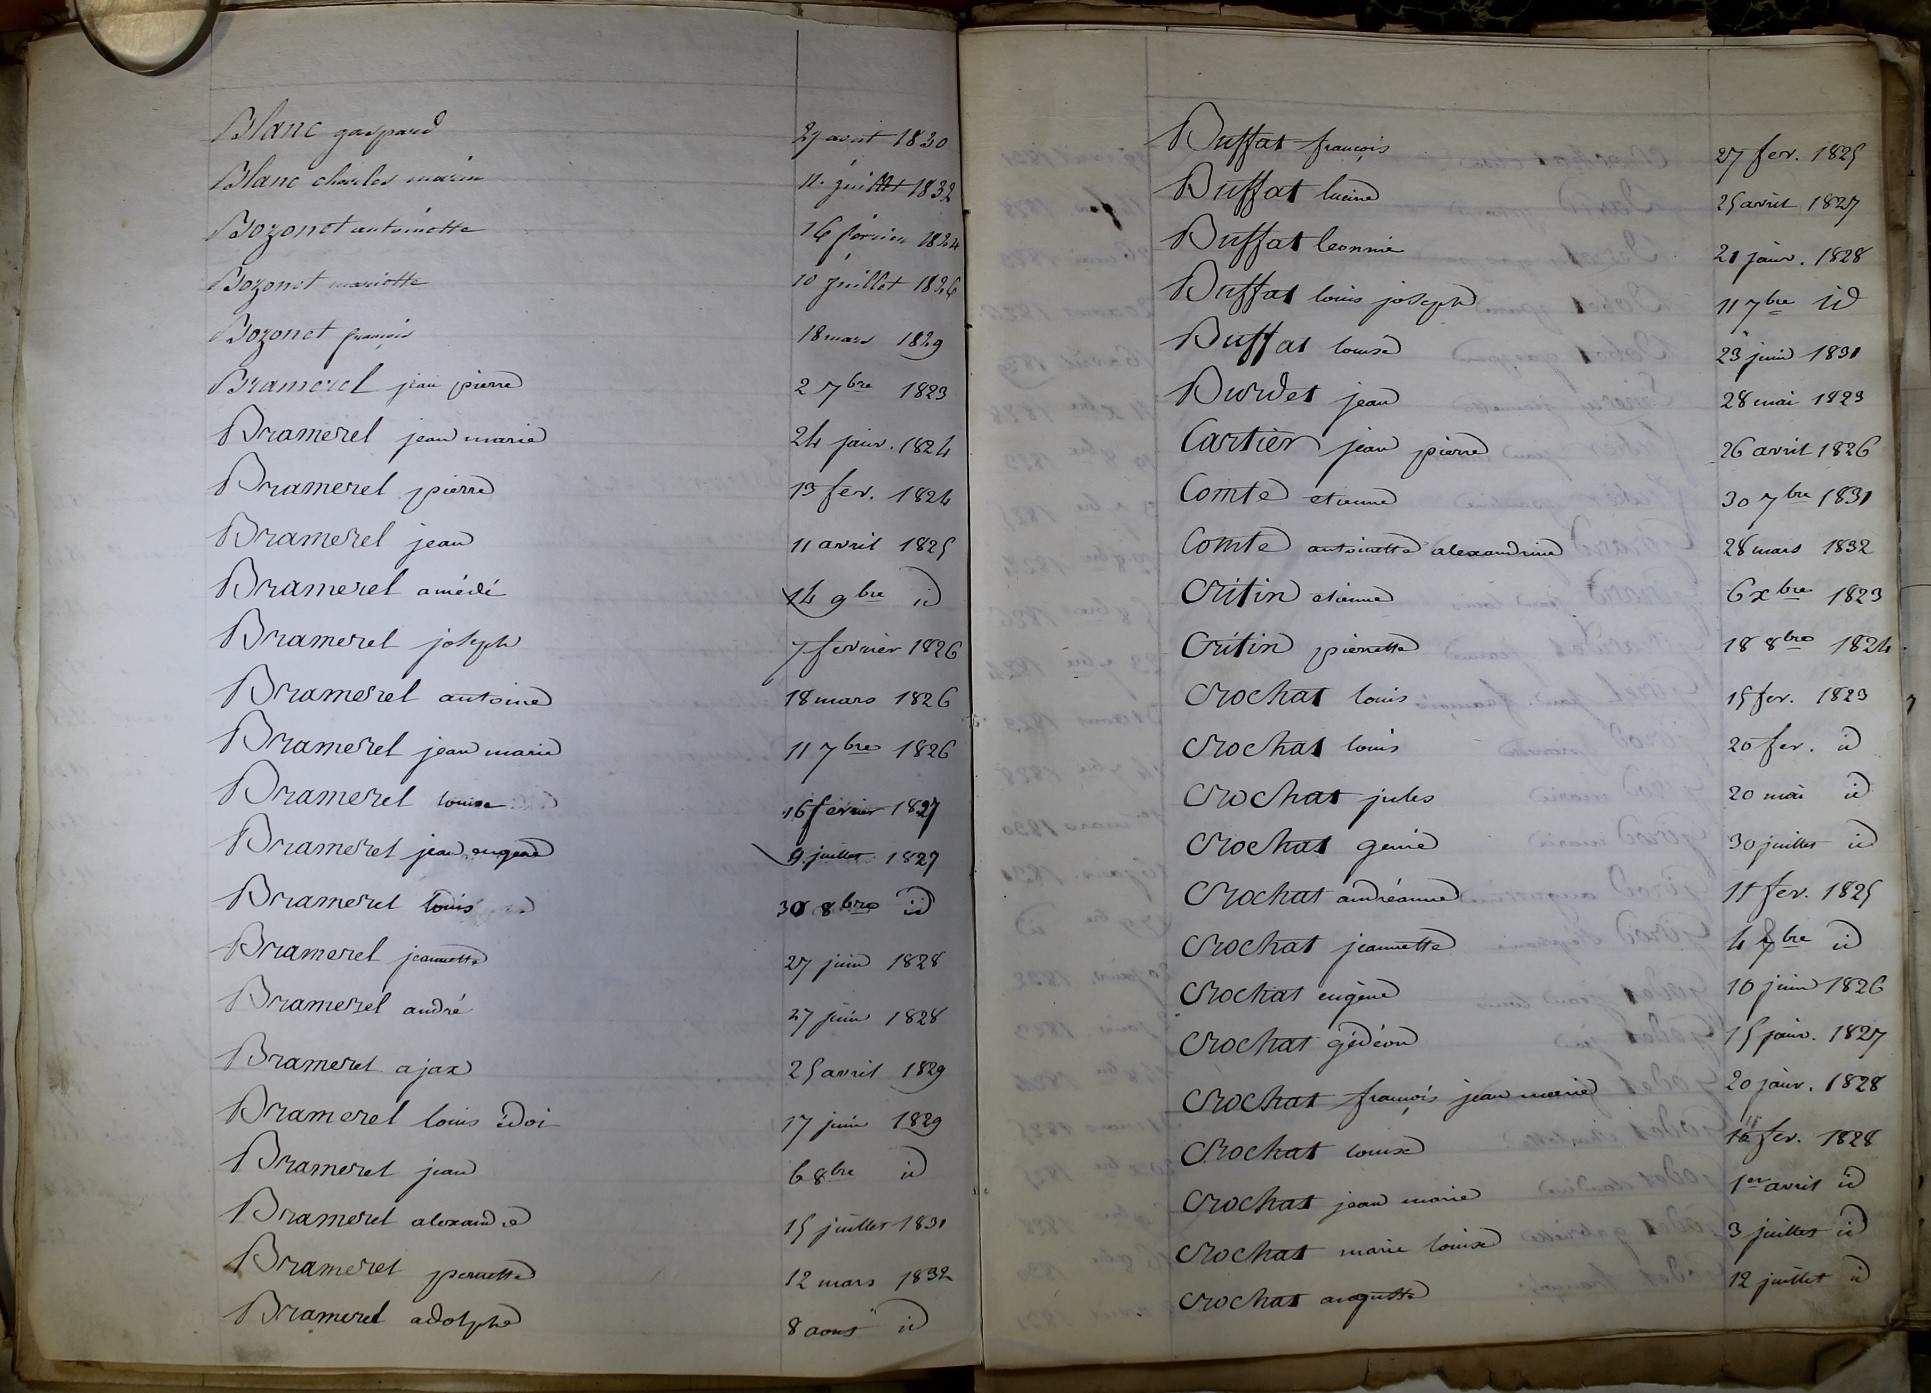 Blanc gaspard 27 avril 1830
Blanc charles marie 11 juillet 1832
Bozonet antoinette 16 février 1824
Bozonet mariette 10 juillet 1826
Bozonet françois 18 mars 1829
Bramerel jean pierre 2 7bre 1823
Bramerel jean marie 24 janv. 1824
Bramerel pierre 13 fev. 1824
Bramerel jean 11 avril 1825
Bramerel amédé 14 9bre id
Bramerel joseph 7 fevrier 1826
Bramerel antoine 18 mars 1826
Bramerel jean marie 11 7bre 1826
Bramerel louise 16 février 1827
Bramerel jean eugene 9 juillet 1827
Bramerel louis 30 8bre id
Bramerel jeannette 27 juin 1828
Bramerel andré 27 juin 1828
Bramerel ajax 25 avril 1829
Bramerel louis édoi 17 juin 1829
Bramerel jean 6 8bre id
Bramerel alexandre 15 juillet 1831
Bramerel pernette 12 mars 1832
Bramerel adolphe 8 aout id
Buffat françois 27 fev. 1825
Buffat lucine 25 avril 1827
Buffat leonnie 21 janv. 1828
Buffat louis joseph 11 7bre id
Buffat louise 23 juin 1831
Burdet jean 28 mai 1823
Cartier jean pierre 26 avril 1826
Comte etienne 30 7bre 1831
Comte antoinette alexandrine 28 mars 1832
Critin etienne 6 xbre 1823
Critin pierrette 18 8bre 1824
Crochat louis 15 fev. 1823
Crochat louis 20 fev. id
Crochat jules 20 mai id
Crochat genie 30 juillet id
Crochat andréanne 11 fev. 1825
Crochat jeannette 4 bre id
Crochat eugène 10 juin 1826
Crochat gédéon 15 janv. 1827
Crochat françois jean marie 20 janv. 1828
Crochat louise fev. 1828
Crochat jean marie 1er avril id
Crochat marie louise 3 juillet id
Crochat augustte 12 juillet id